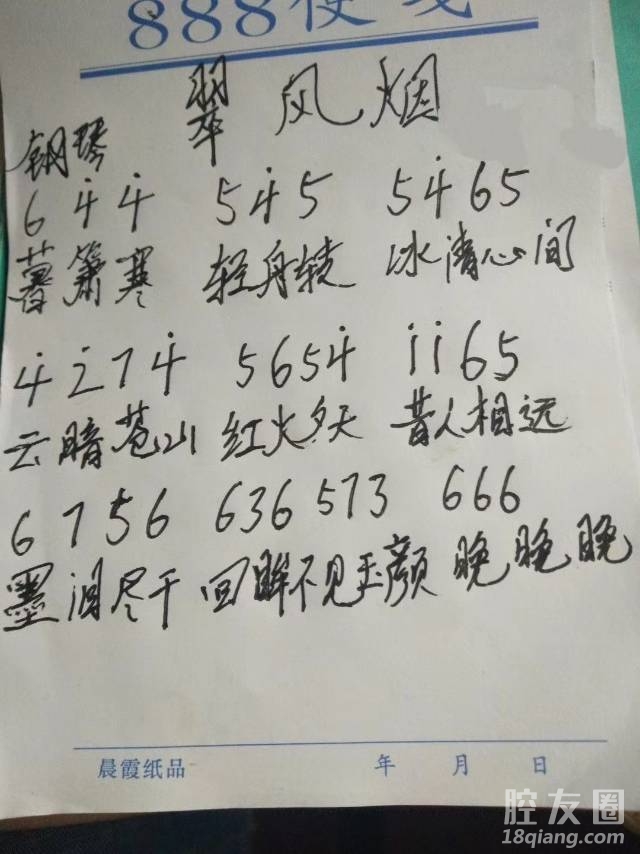 888便笺
翠风烟
钢琴
6 4̇ 4̇ 5 4̇ 5 5 4̇ 6 5
暮箫寒 轻舟转 冰清心间
4̇ 2̇ 7 4̇ 5 6 5 4̇ 1̇ 1̇ 6 5
云暗苍山 红火夕天 昔人相远
6 7 5 6 6 3 6 5 7 3 6 6 6
墨泪尽干 回眸不见玉颜 晚晚晚
晨霞纸品 年 月 日
腔友圈
18qiang.com